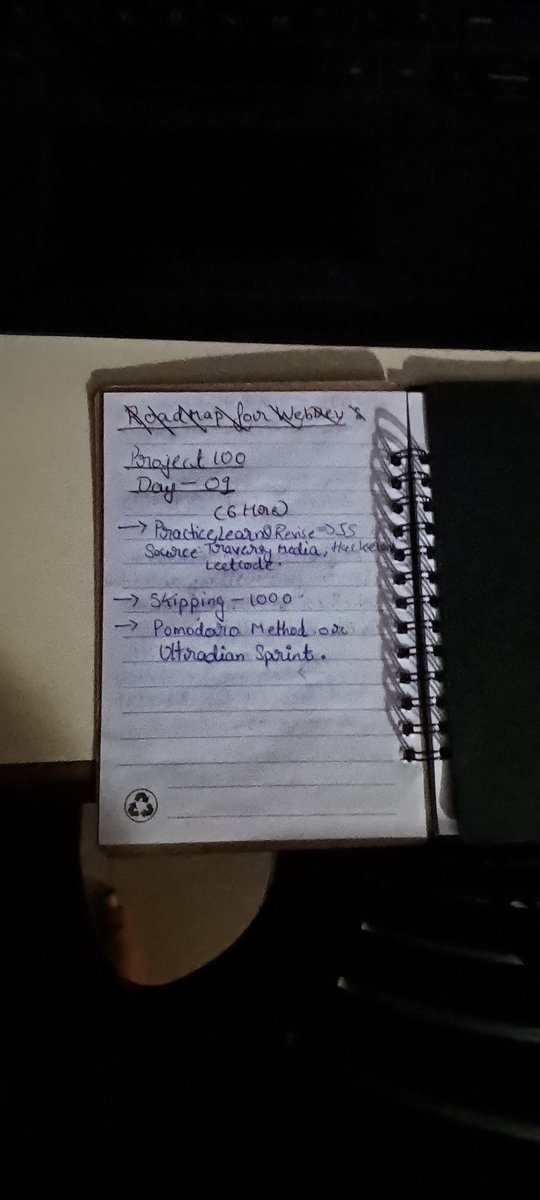 Roadmap for WebDev's
Project 100
Day - 01
(6 Hors)
→ Practice, Learn, Revise → JS
Source: Traversy Media,
Leetcode.
→ Skipping - 1000
→ Pomodaro Method or
Ultradian Sprint.